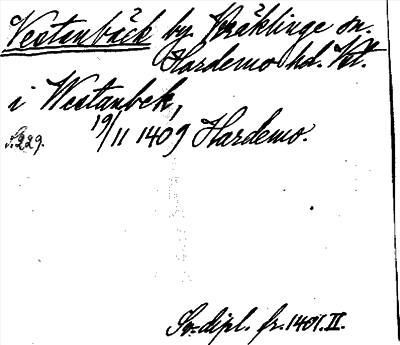 Vestanbäck by. Kräklinge sn.
Hardemo hd. Vst.
i Westanbek,
S. 229. 19/11 1409 Hardemo.
Sv. dipl. fr. 1401. II.